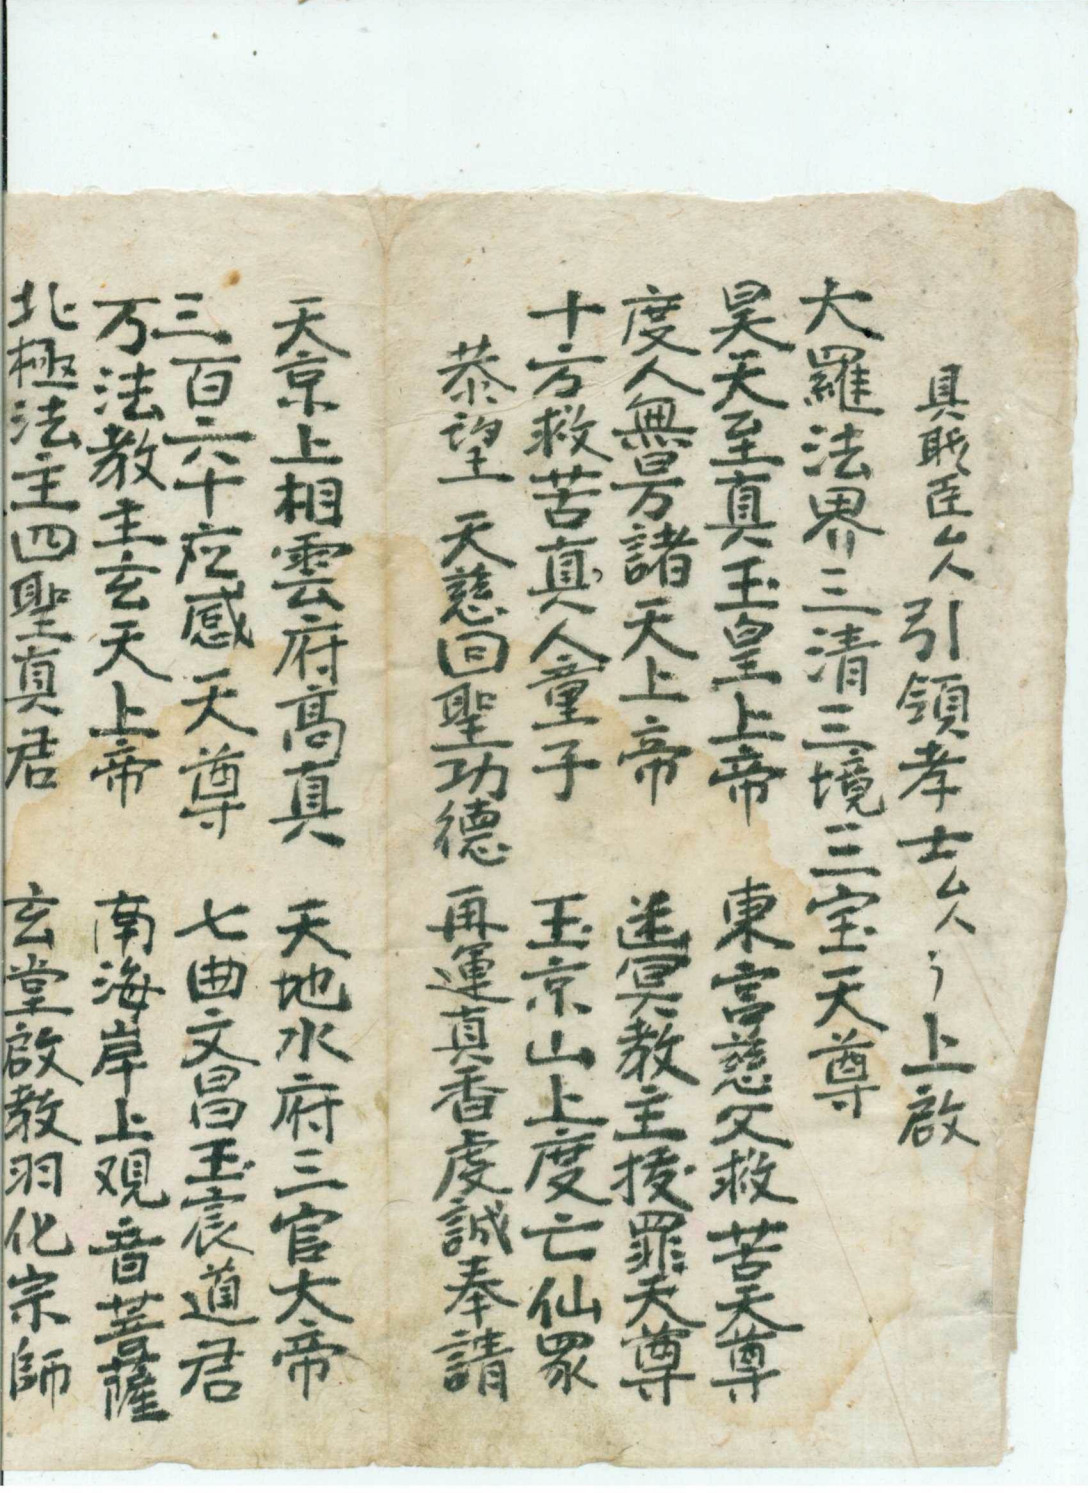 具職臣厶人引領孝士厶人〻上啟
大羅法界三清三境三宝天尊
昊天至真玉皇上帝 東宮慈父救苦天尊
度人無量諸天上帝 迷冥教主拔罪天尊
十方救苦真人童子 玉京山上度亡仙眾
恭望 天慈回聖功德 再運真香虔誠奉請
天京上相雲府高真 天地水府三官大帝
三百六十应感天尊 七曲文昌玉宸道君
万法教主玄天上帝 南海岸上观音菩薩
北極法主四聖真君 玄堂啟教羽化宗師